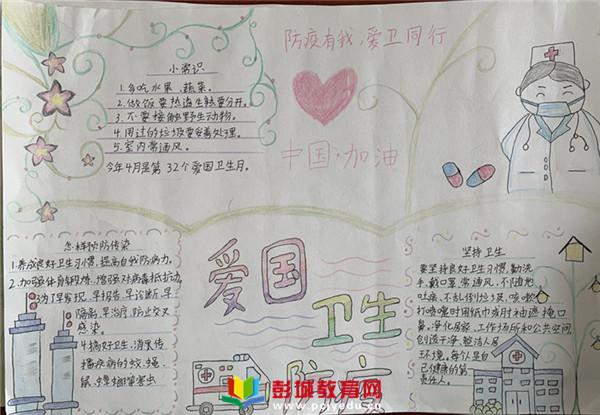 小常识
1.多吃水果、蔬菜。
2.做饭要熟透生熟要分开。
3.不要接触野生动物。
4.用过的垃圾要妥善处理。
5.室内常通风。
今年4月是第32个爱国卫生月。
防疫有我,爱卫同行
中国·加油
怎样预防传染
1.养成良好卫生习惯,提高自我防病力。
2.加强体育锻炼,增强对病毒抵抗力
3.为了早发现、早报告、早诊断、早
隔离、早治疗、防止交叉
感染。
4.搞好卫生,消灭传
播疾病的蚊、蝇、
鼠、蟑螂等害虫
爱国
卫生
防疫
坚持卫生
要坚持良好卫生习惯,勤洗
手、戴口罩、常通风、不随地
吐痰、不乱倒垃圾,咳嗽、
打喷嚏时用纸巾或肘袖遮掩口
鼻。净化居家、工作场所和公共空间
创造干净、整洁人居
环境。每个人是自
己健康的第一
责任人。
彭城教育网
www.pcjyedu.cn